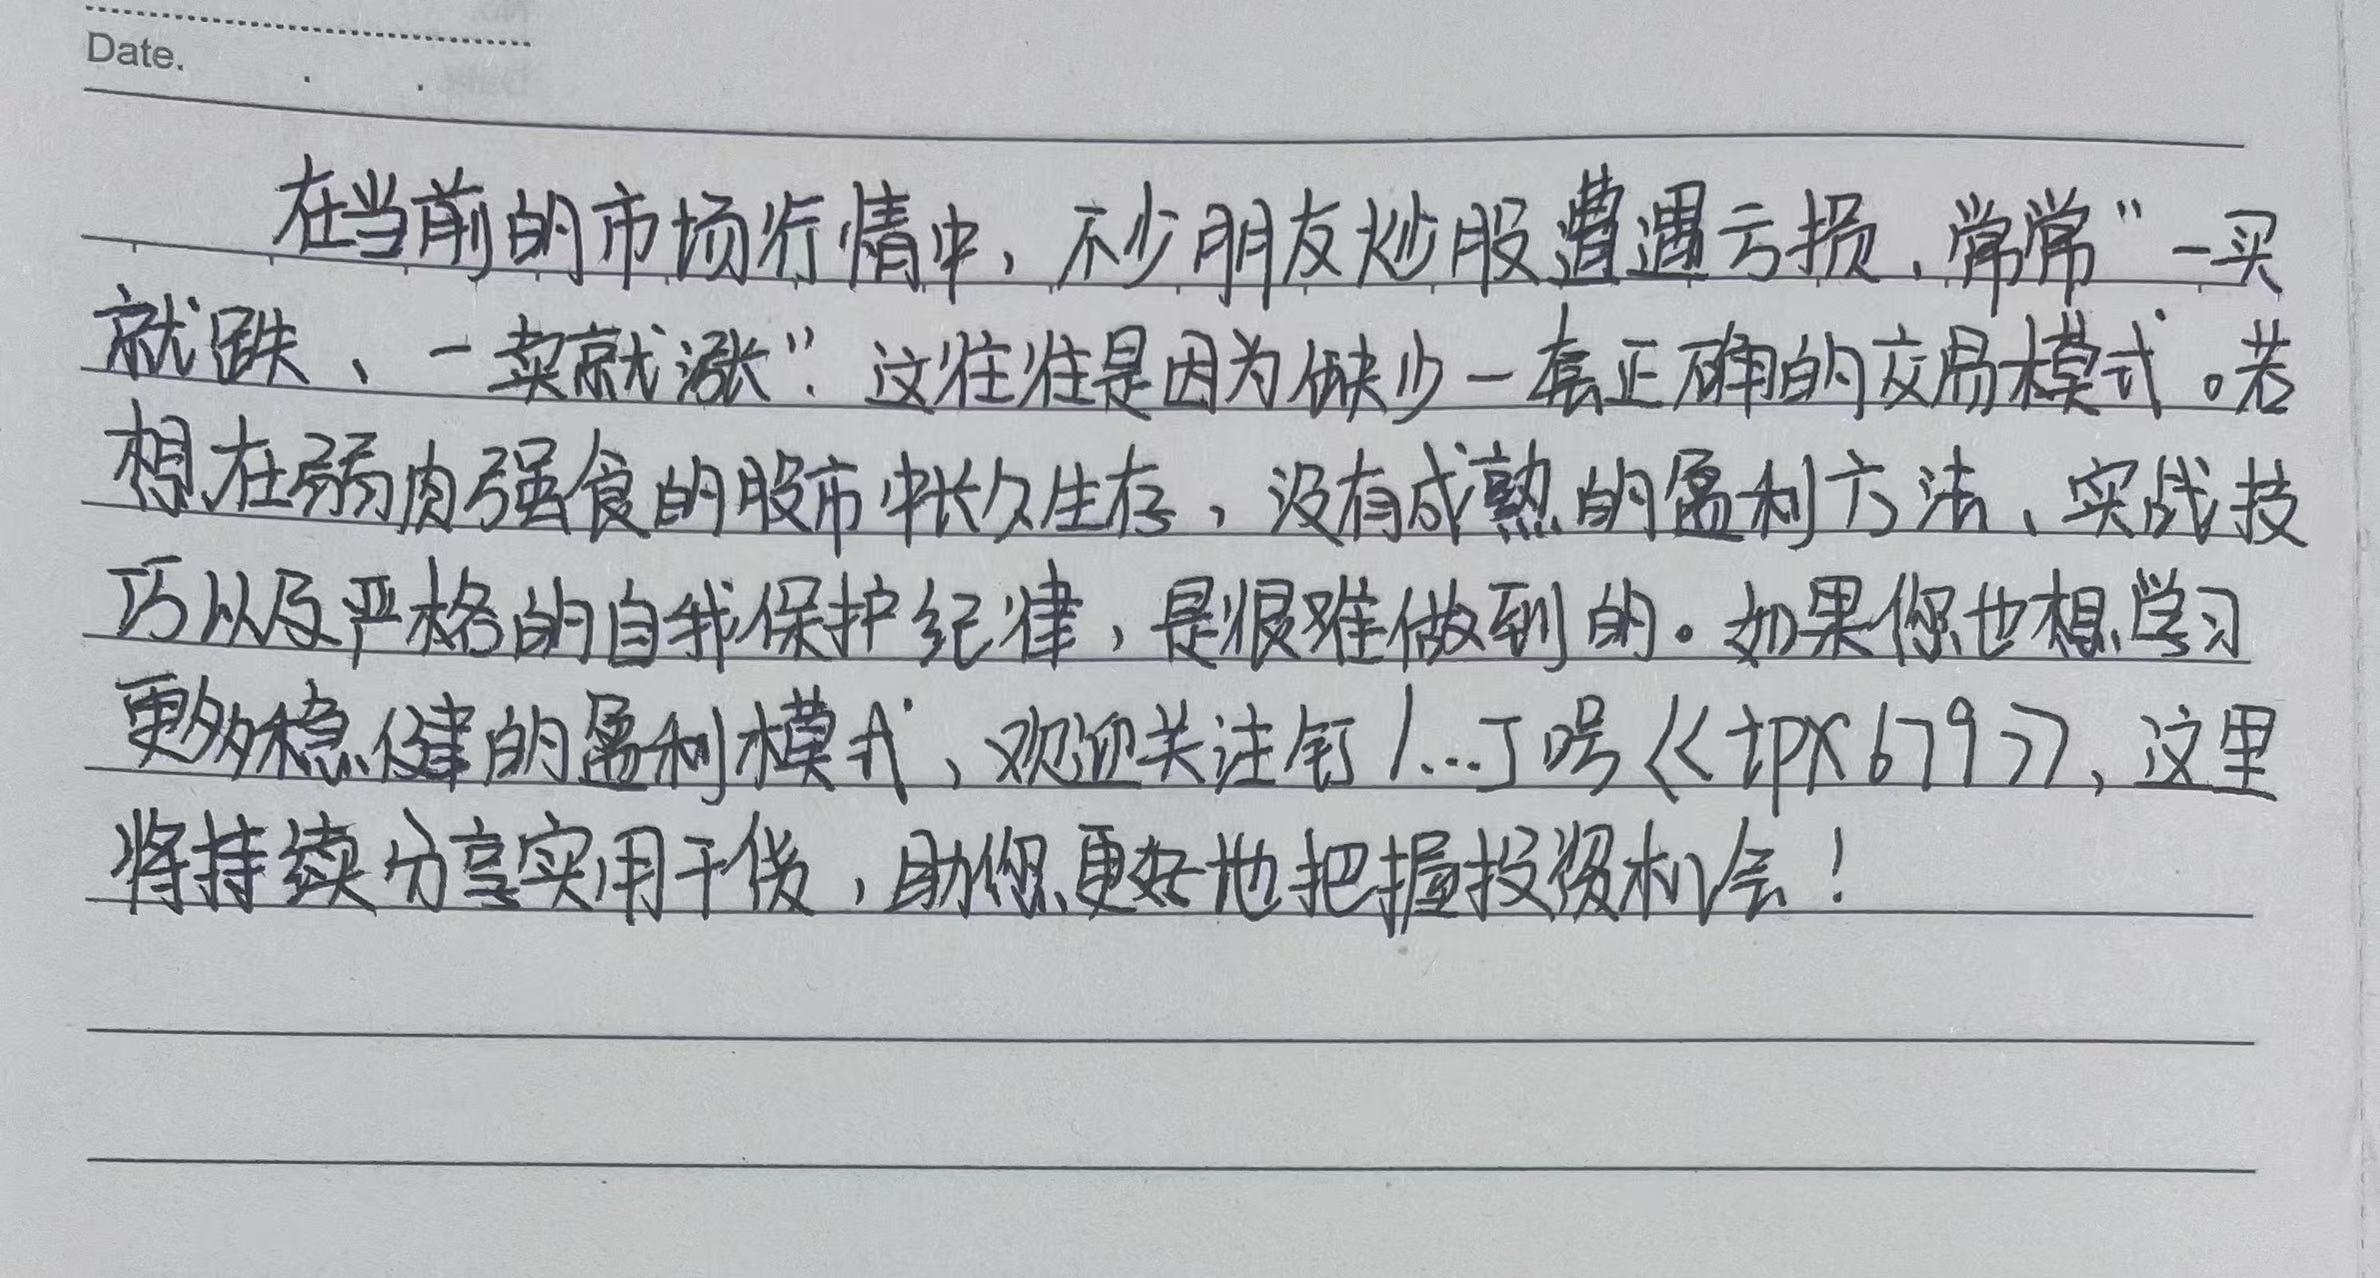 Date.
在当前的市场行情中，不少朋友炒股遭遇亏损，常常“一买
就跌、一卖就涨”.这往往是因为缺少一套正确的交易模式。若
想在弱肉强食的股市中长久生存，没有成熟的盈利方法、实战技
巧以及严格的自我保护纪律，是很难做到的。如果你也想学习
更多稳健的盈利模式，欢迎关注钉/…丁号《tpx679》，这里
将持续分享实用干货，助你更好地把握投资机会！